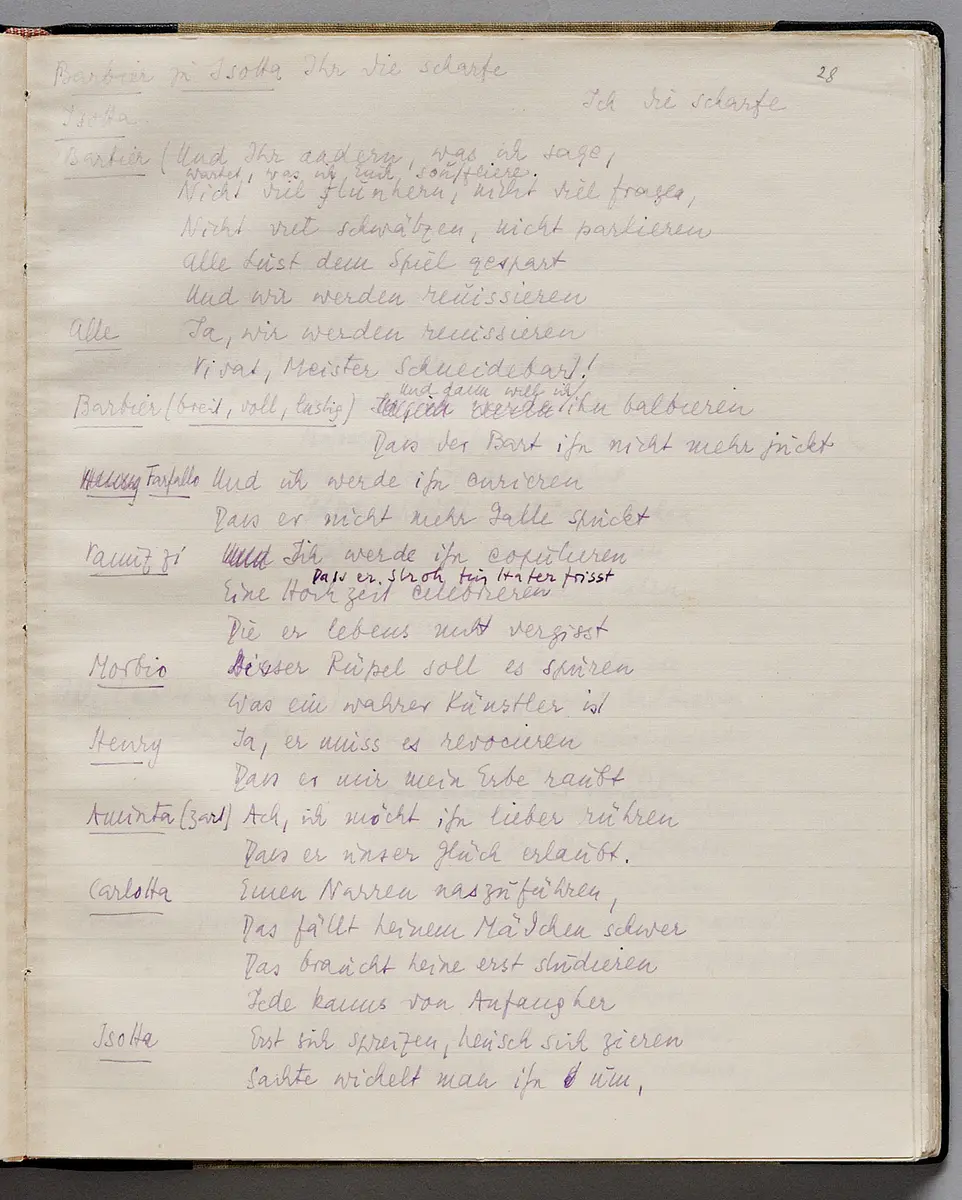 28
Barbier zu Isotta Ihr die scharfe
Isotta Ich die scharfe
Barbier (Und Ihr andern, was ich sage,
wartet, was ich Euch souffliere.
Nicht viel flunkern, nicht viel fragen,
Nicht viel schwätzen, nicht parlieren
Alle Lust dem Spiel gespart
Und wir werden reuissieren
Alle Ja, wir werden reuissieren
Vivat, Meister Schneidebart!
und dann will ich
Barbier (breit, voll, lustig) ihn balbieren
Dass der Bart ihn nicht mehr juckt
Henry Farfallo Und ich werde ihn curieren
Dass er nicht mehr Galle spuckt
Vanuzzi Und Ich werde ihn copulieren
Dass er Stroh für Hafer frisst
Eine Hochzeit celebrieren
Die er lebens nicht vergisst
Morbio Dieser Rüpel soll es spüren
Was ein wahrer Künstler ist
Henry Ja, er muss es revocieren
Dass er mir mein Erbe raubt
Aminta (zart) Ach, ich möcht ihn lieber rühren
Dass er unser Glück erlaubt.
Carlotta Einen Narren naszuführen,
Das fällt keinem Mädchen schwer
Das braucht keine erst studieren
Jede kanns von Anfang her
Isotta Erst sich spreizen, keusch sich zieren
Sachte wickelt man ihn um,